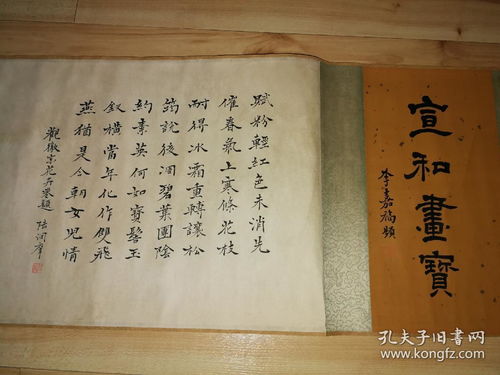 宣和畫寶
李嘉福題
賦粉輕紅色未消先
催春氣上寒條花枝
耐得冰霜重轉讓松
筠說後凋碧葉團陰
約素英何如寶髻玉
釵橫當年化作雙飛
燕猶是今朝女兒情
觀徽宗花卉題 陸
孔夫子旧书网
www.kongfz.com